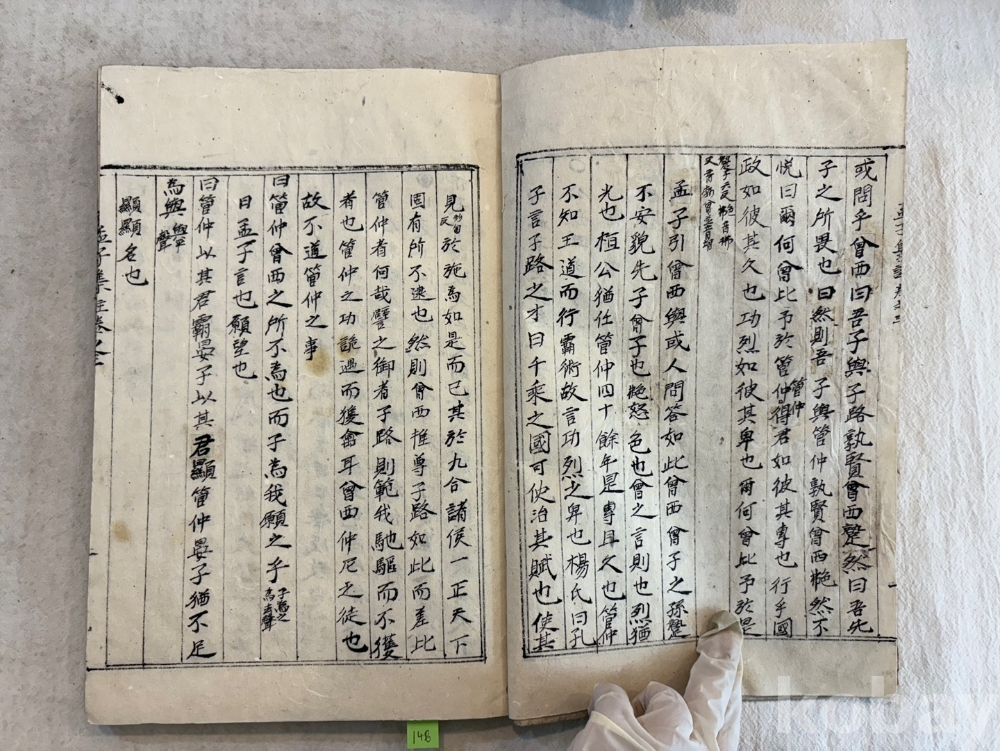 或問乎曾西曰吾子與子路孰賢曾西蹵然曰吾先
子之所畏也曰然則吾子與管仲孰賢曾西艴然不
悅曰爾何曾比予於管仲管仲得君如彼其專也行乎國
政如彼其久也功烈如彼其卑也爾何曾比予於是
孟子引曾西與或人問答如此曾西曾子之孫蹵
不安貌先子曾子也艴怒色也曾之言則也烈猶
光也桓公獨任管仲四十餘年是專且久也管仲
不知王道而行霸術故言功烈之卑也楊氏曰孔
子言子路之才曰千乘之國可使治其賦也使其
見於施為如是而已其於九合諸侯一正天下
固有所不逮也然則曾西推尊子路如此而羞比
管仲者何哉譬之御者子路則範我馳驅而不獲
者也管仲之功詭遇而獲禽耳曾西仲尼之徒也
故不道管仲之事
曰管仲曾西之所不為也而子為我願之乎子為之為去聲
曰孟子言也願望也
曰管仲以其君霸晏子以其君顯管仲晏子猶不足
為與與平聲
顯顯名也
孟子集註卷之三
148
kobay